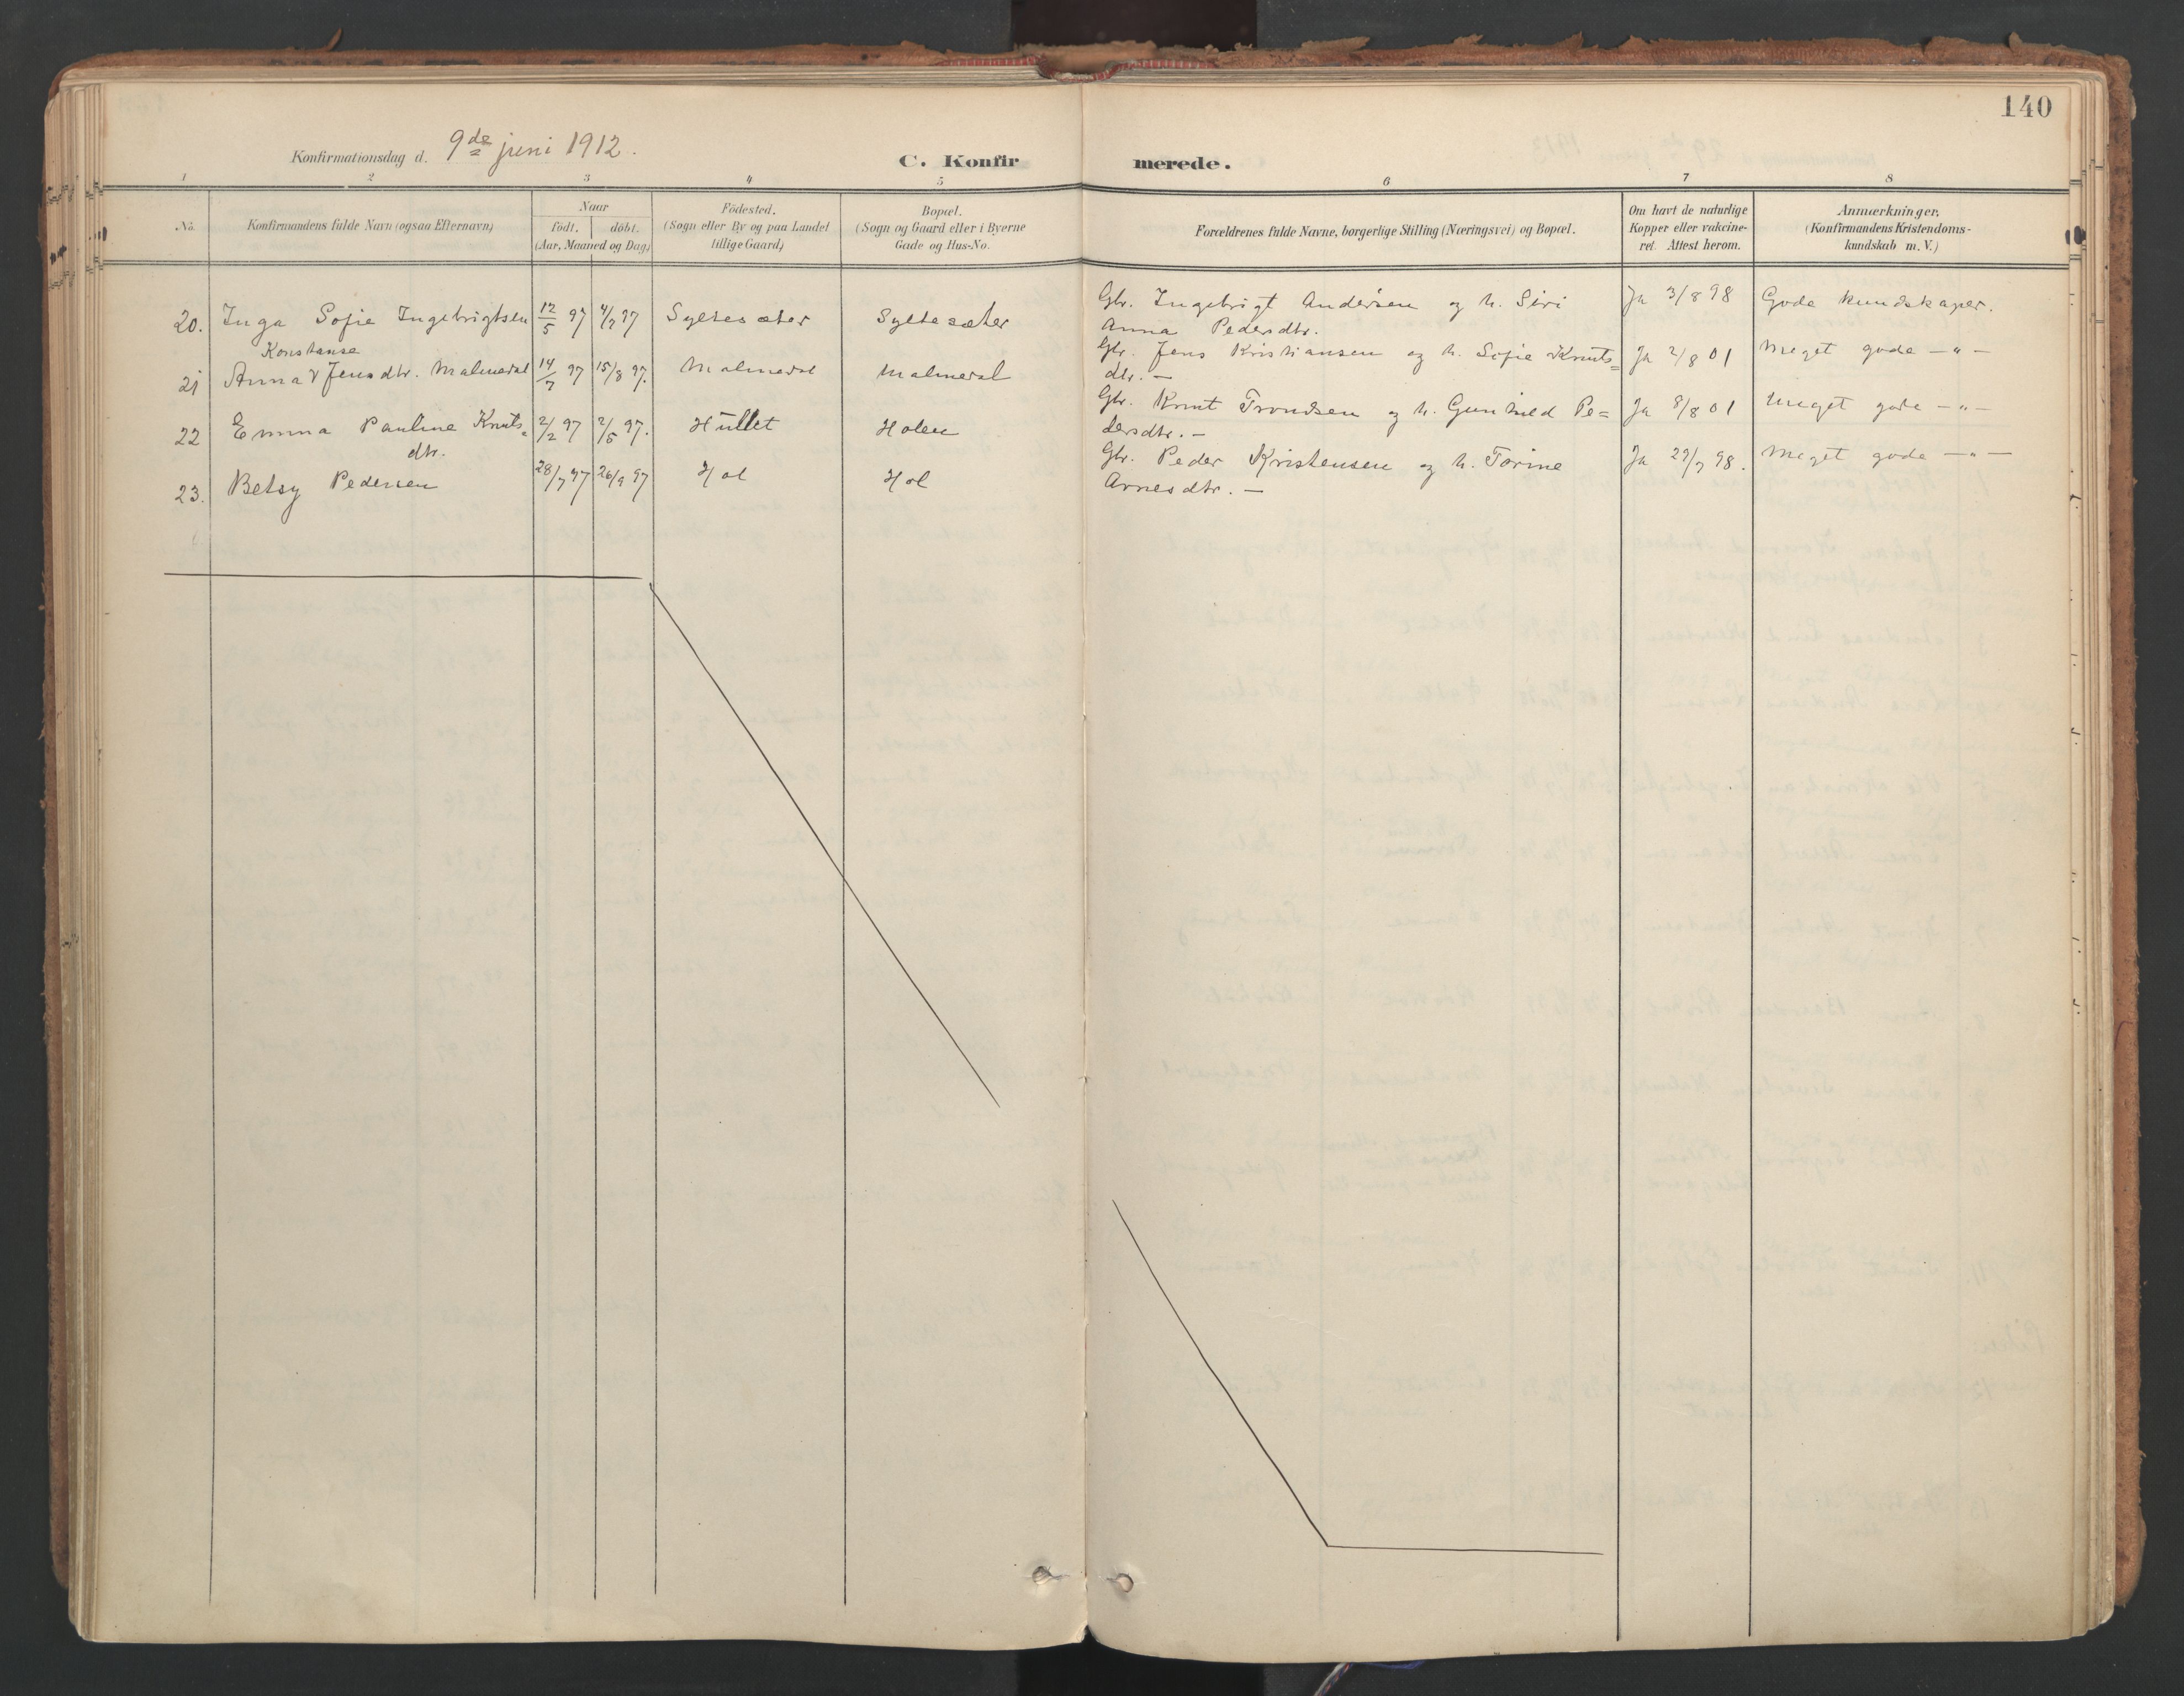 140
Konfirmationsdag d. 9de juni 1912.
C. Konfirmerede.
1 2 3 4 5 6 7 8
No.
Konfirmandens fulde Navn (ogsaa Efternavn)
Naar
födt. döbt.
(Aar, Maaned og Dag)
Födested.
(Sogn eller By og paa Landet
tillige Gaard)
Bopæl.
(Sogn og Gaard eller i Byerne
Gade og Hus-No.
Forældrenes fulde Navne, borgerlige Stilling (Næringsvei) og Bopæl.
Om havt de naturlige
Kopper eller vakcine-
ret. Attest herom.
Anmærkninger.
(Konfirmandens Kristendoms-
kundskab m. V.)
20. Inga Sofie Ingebrigtsen 12/5 97 4/7 97 Syltesæter Syltesæter Gbr. Ingebrigt Andersen og h. Siri Ja 3/8 98 Gode kundskaper.
Anna Pedersdtr.
Konstanse
21 Anna v Jensdtr. Malmedal 14/7 97 15/8 97. Malmedal Malmedal Gbr. Jens Kristiansen og h. Sofie Knuts= Ja 2/8 01 Meget gode —"—
dtr. —
22 Emma Pauline Knuts= 2/2 97 2/5 97. Hullet Holen Gbr. Knut Trondsen og h. Gunhild Pe= Ja 8/8 01 Meget gode —"—
dtr.
dersdtr. —
23. Betsy Pedersen 28/7 97 26/9 97 Hol Hol Gbr. Peder Kristensen og h. Torine Ja 29/7 98. Meget gode —"—
Arnesdtr. —